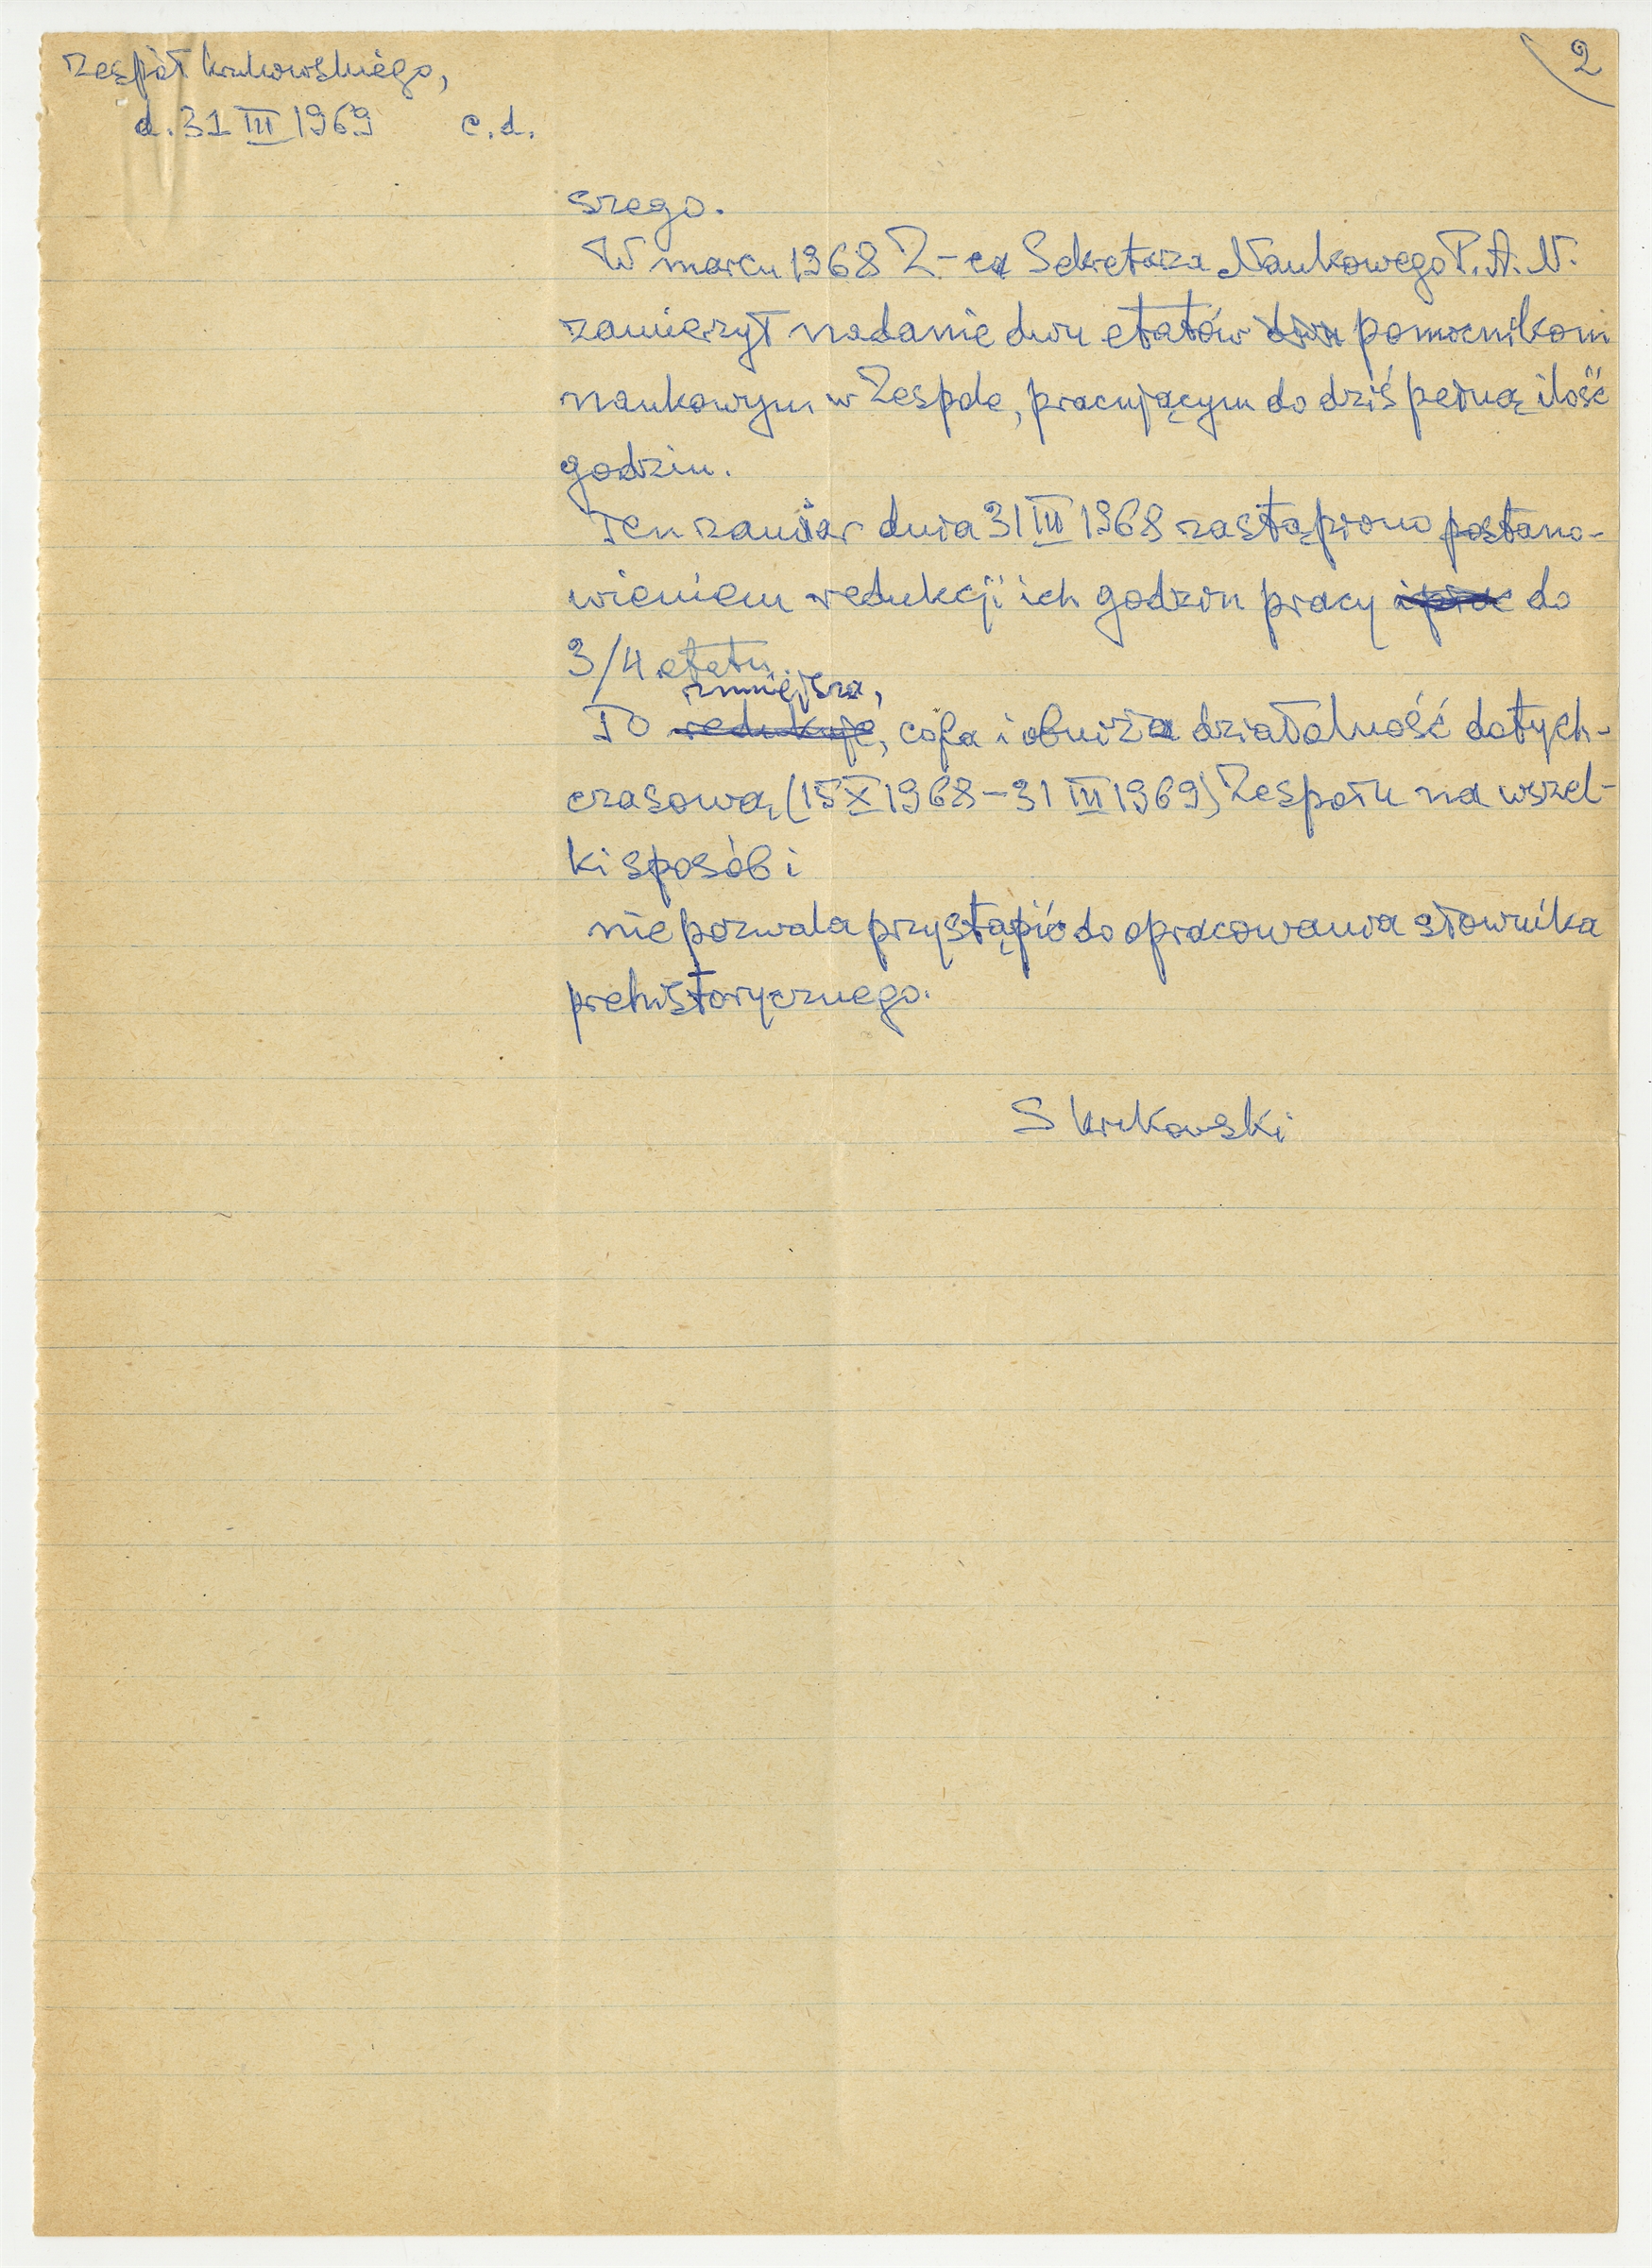 Zespół Krukowskiego,
d. 31 III 1969 c.d.
2
szego.
W marcu 1968 Z-ca Sekretarza Naukowego P.A.N.
zamierzył nadanie dwu etatów dwu pomocnikom
naukowym w Zespole, pracującym do dziś pełną ilość
godzin.
Ten zamiar dnia 31 III 1968 zastąpiono postano-
wieniem redukcji ich godzin pracy do
3/4 etatu.
zmniejsza,
To redukuje, cofa i obniża działalność dotych-
czasową (15 X 1968 – 31 III 1969) Zespołu na wszel-
ki sposób i
nie pozwala przystąpić do opracowania słownika
prehistorycznego.
S Krukowski